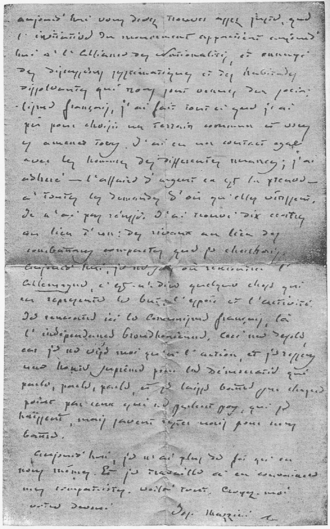 aujourd'hui vous devez trouver assez juste, que
l'initiative du mouvement appartient aujourd'
hui à l'Alliance des Nationalités, et
des systématiques et des habitudes
dissolvantes qui nous sont venues des socia-
listes français, j'ai fait tout ce que j'ai
pu pour choisir un terrain commun et vous
y amener tous. J'ai eu mes contact
avec les hommes des différentes nuances; j'ai
adhéré — l'affaire d'argent en est la preuve —
à toutes les demandes d'où qu'elles vinssent.
Je n'ai pas réussi. J'ai trouvé dix centres
au lieu d'un: des rivaux au lieu des
combattans compactes que je cherchais.
Aujourd'hui, je ne
Allemagne, c'est-à-dire quelque chose qui
en représente le but, l'esprit et l'activité.
Je rencontre ici le Communisme français, là
l'indépendance Proudhonienne. Ceci me désole
car je ne vise moi qu'à l'action, et je
une suprême pour la démocratie qui
parle, parle, parle, et se laisse battre sur chaque
point par ceux qui ne parlent pas, qui se
haïssent, mais savent s'unir pour nous
battre.
Aujourd'hui, je n'ai plus de foi qu'en
nous mêmes. Et je travaille à en convaincre
mes compatriotes. Voilà tout. Croyez-moi
votre dévoué
Jos. Mazzini